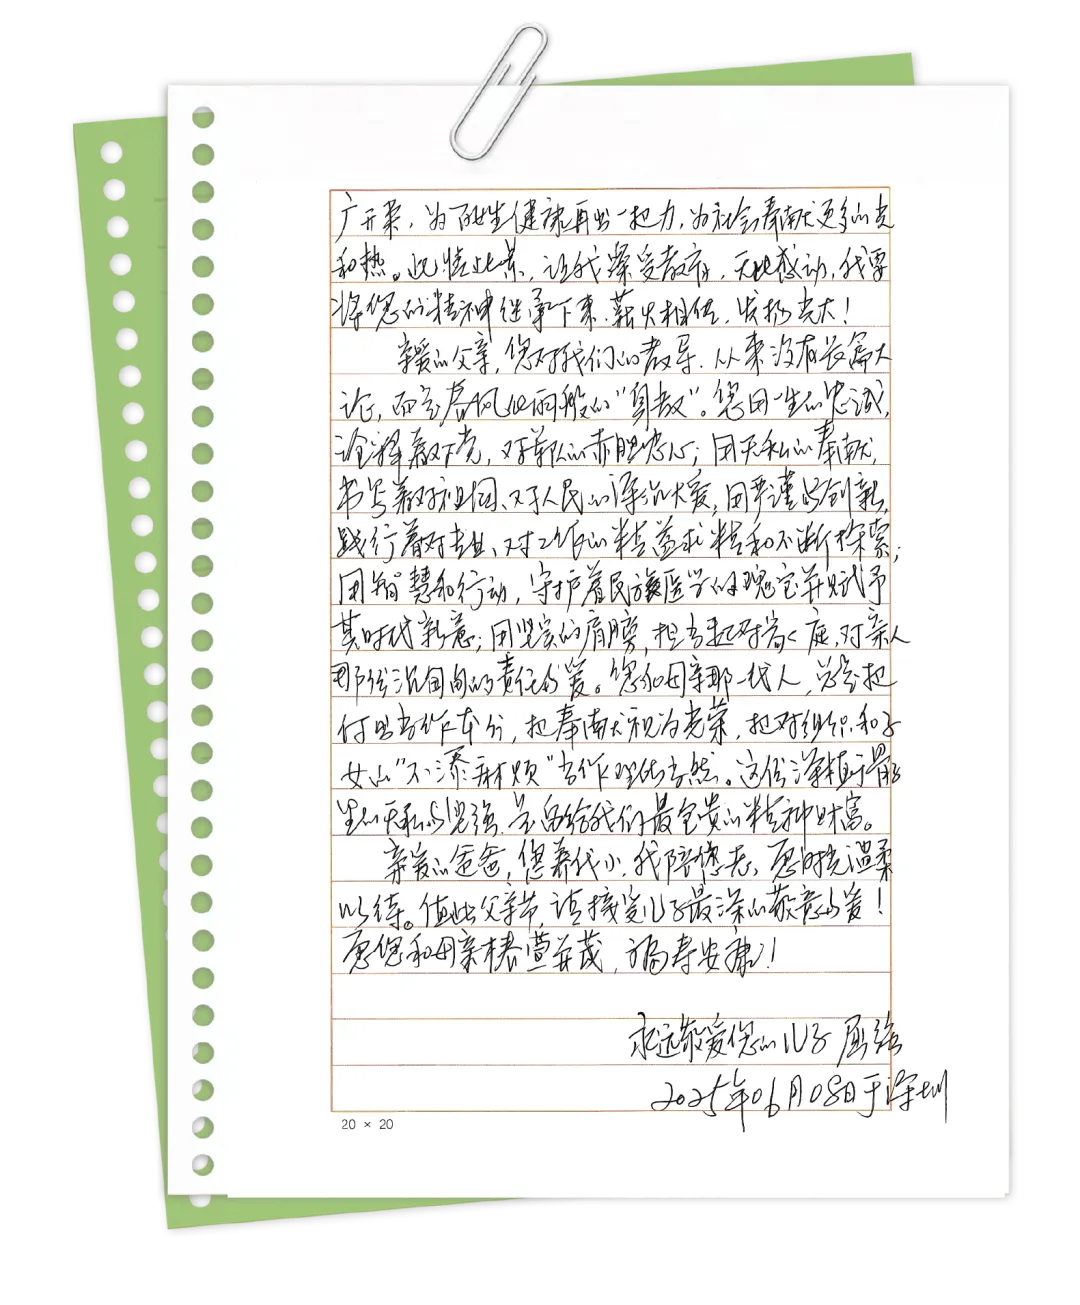 广开来，为百姓健康再出一把力，为社会奉献更多的光
和热。此情此景，让我深受教育，无比感动，我要
将您的精神继承下来，薪火相传，发扬光大！
亲爱的父亲，您对我们的教导，从来没有长篇大
论，而是春风化雨般的“身教”。您用一生的忠诚，
诠释着对党，对军队的赤胆忠心；用无私的奉献，
书写着对祖国、对人民的深沉大爱，用严谨的创新，
践行着对专业、对工作的精益求精和不断探索；
用智慧和行动，守护着民族医学的瑰宝并赋予
其时代新意；用坚实的肩膀，担当起对家庭，对亲人
那份沉甸甸的责任与爱。您和母亲那一代人，总是把
付出当作本分，把奉献视为光荣，把对组织和子
女的“不添麻烦”当作理所当然。这份深植于骨子
里的无私与坚强，是留给我们最宝贵的精神财富。
亲爱的爸爸，您养我小，我陪您老，愿时光温柔
以待。值此父亲节，请接受儿子最深的敬意与爱！
愿您和母亲椿萱并茂，福寿安康！
永远敬爱您的儿子 屈强
2025年06月08日于深圳
20 × 20